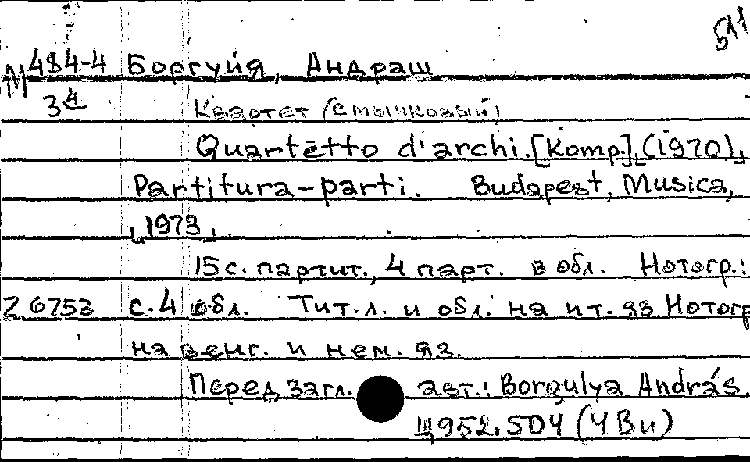 511
М 484-4 Боргуйя, Андраш
34 Квартет (смычковый)
Quartetto d'archi. [Komp.] (1970).
Partitura-parti. Budapest, Musica,
1973.
15 с. партит., 4 парт. в обл. Нотогр.:
Z 6753 с. 4 обл. Тит. л. и обл. на ит. яз Нотогр
на венг. и нем. яз.
Перед загл. авт.: Borgulya András.
Щ952.504 (4Ви)